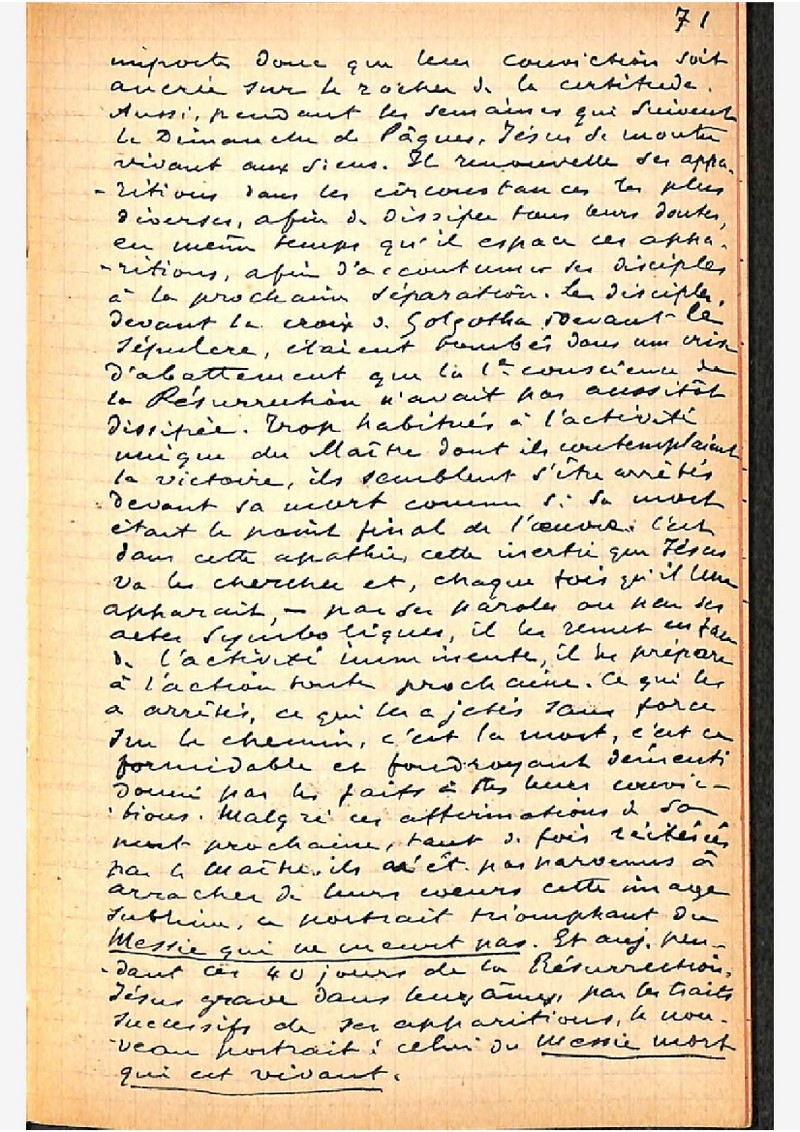 71
importe donc que leur conviction soit
ancrée sur le rocher de la certitude.
Aussi, pendant les semaines qui suivent
le Dimanche de Pâques, Jésus se montre
vivant aux siens. Il renouvelle ses appa-
-ritions dans les circonstances les plus
diverses, afin de dissiper tous leurs doutes,
en même temps qu'il espace ces appa-
-ritions, afin d'accoutumer ses disciples
à la prochaine séparation. Les disciples,
devant la croix de Golgotha, devant le
sépulcre, étaient tombés dans une crise
d'abattement que la 1e conscience de
la Résurrection n'avait pas aussitôt
dissipée. Trop habitués à l'activité
unique du Maître dont ils contemplaient
la victoire, ils semblent s'être arrêtés
devant sa mort comme si sa mort
était le point final de l'œuvre. C'est
dans cette apathie, cette inertie que Jésus
va les chercher et, chaque fois qu'il leur
apparaît, – par ses paroles ou par ses
actes symboliques, il les remet en face
de l'activité imminente, il les prépare
à l'action toute prochaine. Ce qui les
a arrêtés, ce qui les a jetés sans force
sur le chemin, c'est la mort, c'est ce
formidable et foudroyant démenti
donné par les faits à ttes leurs convic-
tions. Malgré ces affirmations de sa
mort prochaine, tant de fois réitérées
par le Maître, ils n'ét. pas parvenus à
arracher de leurs cœurs cette image
sublime, ce portrait triomphant du
Messie qui ne meurt pas. Et auj. pen-
-dant ces 40 jours de la Résurrection,
Jésus grave dans leurs âmes, par les traits
successifs de ses apparitions, le nou-
veau portrait : celui du Messie mort
qui est vivant.